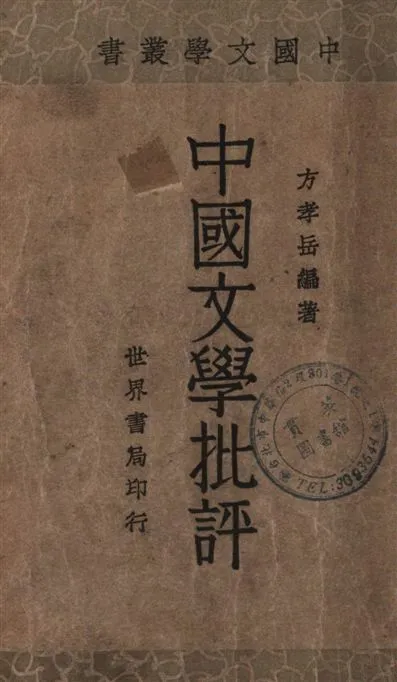 中國文學叢書
方孝岳編著
中國文學批評
世界書局印行
圖書館
TEL:3083544